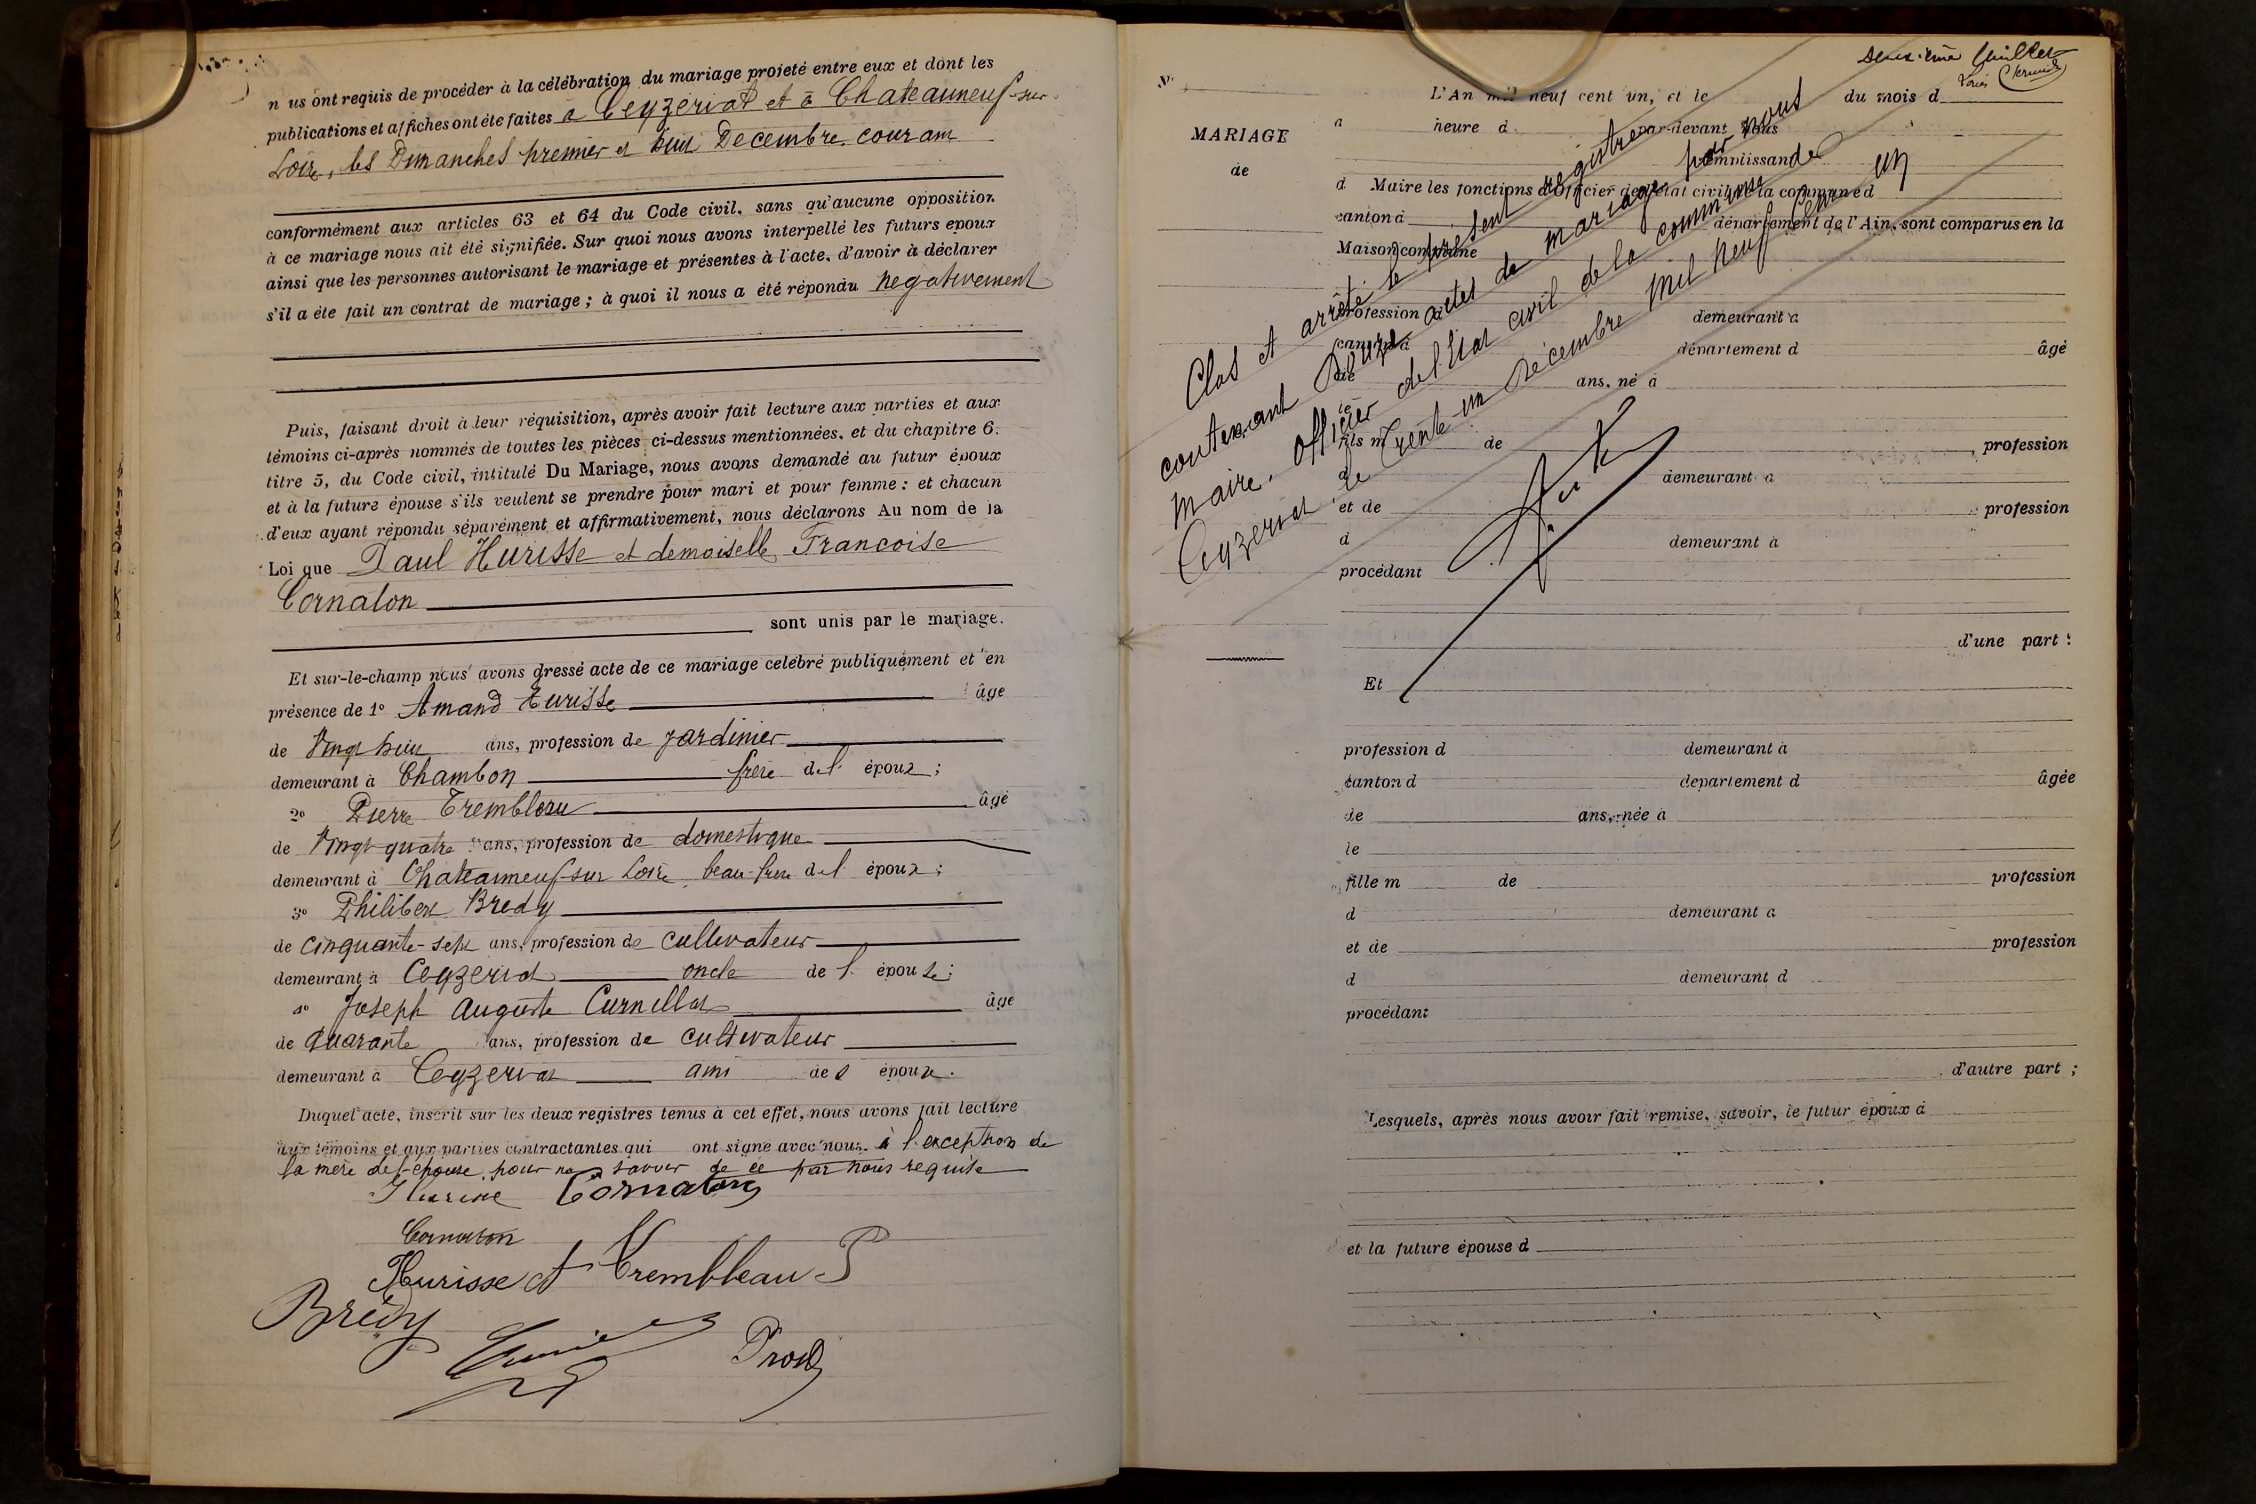 nous ont requis de procéder à la célébration du mariage projeté entre eux et dont les
publications et affiches ont été faites à Ceyzériat et à Chateauneuf-sur-
Loire, les Dimanches premier et huit Decembre courant
conformément aux articles 63 et 64 du Code civil, sans qu'aucune opposition
à ce mariage nous ait été signifiée. Sur quoi nous avons interpellé les futurs époux
ainsi que les personnes autorisant le mariage et présentes à l'acte, d'avoir à déclarer
s'il a été fait un contrat de mariage ; à quoi il nous a été répondu negativement
Puis, faisant droit à leur réquisition, après avoir fait lecture aux parties et aux
témoins ci-après nommés de toutes les pièces ci-dessus mentionnées, et du chapitre 6.
titre 5, du Code civil, intitulé Du Mariage, nous avons demandé au futur époux
et à la future épouse s'ils veulent se prendre pour mari et pour femme : et chacun
d'eux ayant répondu séparément et affirmativement, nous déclarons Au nom de la
Loi que Paul Hurisse et demoiselle Francoise
Cornaton
sont unis par le mariage.
Et sur-le-champ nous avons dressé acte de ce mariage célébré publiquement et en
présence de 1º Amand Hurisse âgé
de Vingt huit ans, profession de jardinier
demeurant à Chambon frere de l' époux ;
2º Pierre Trembleau âgé
de Vingt quatre ans, profession de domestique
demeurant à Chateauneuf-sur Loire beau-frere de l' époux ;
3º Philibert Bredy
de cinquante-sept ans, profession de cultivateur
demeurant à Ceyzeriat oncle de l' épouse ;
4º Joseph Auguste Curnillat âgé
de quarante ans, profession de cultivateur
demeurant à Ceyzeriat ami des époux.
Duquel acte, inscrit sur les deux registres tenus à cet effet, nous avons fait lecture
aux témoins et aux parties contractantes qui ont signé avec nous à l'exception de
la mere de l'épouse pour ne savoir de ce par nous requise
Hurisse Cornaton
Cornaton
Hurisse A Trembleau P
Brédy
Prost
Deuxième feuillet
Nº
L'An mil neuf cent un, et le du mois d
MARIAGE
de
à heure d par-devant Nous
remplissant
d Maire les fonctions d'Officier de l'état civil de la commune d
canton d département de l'Ain, sont comparus en la
Maison commune
profession d demeurant à
canton d département d âgé
de ans, né à
le
fils m de profession
d demeurant à
et de profession
d demeurant à
procédant
d'une part :
Et
profession d demeurant à
canton d département d âgée
de ans, née à
le
fille m de profession
d demeurant à
et de profession
d demeurant d
procédant
d'autre part ;
Lesquels, après nous avoir fait remise, savoir, le futur époux d
et la future épouse d
Clos et arrêté le présent registre
contenant douze actes de mariage par nous
maire, officier de l'Etat civil de la commune de
Ceyzeriat le trente un Décembre mil neuf cent un